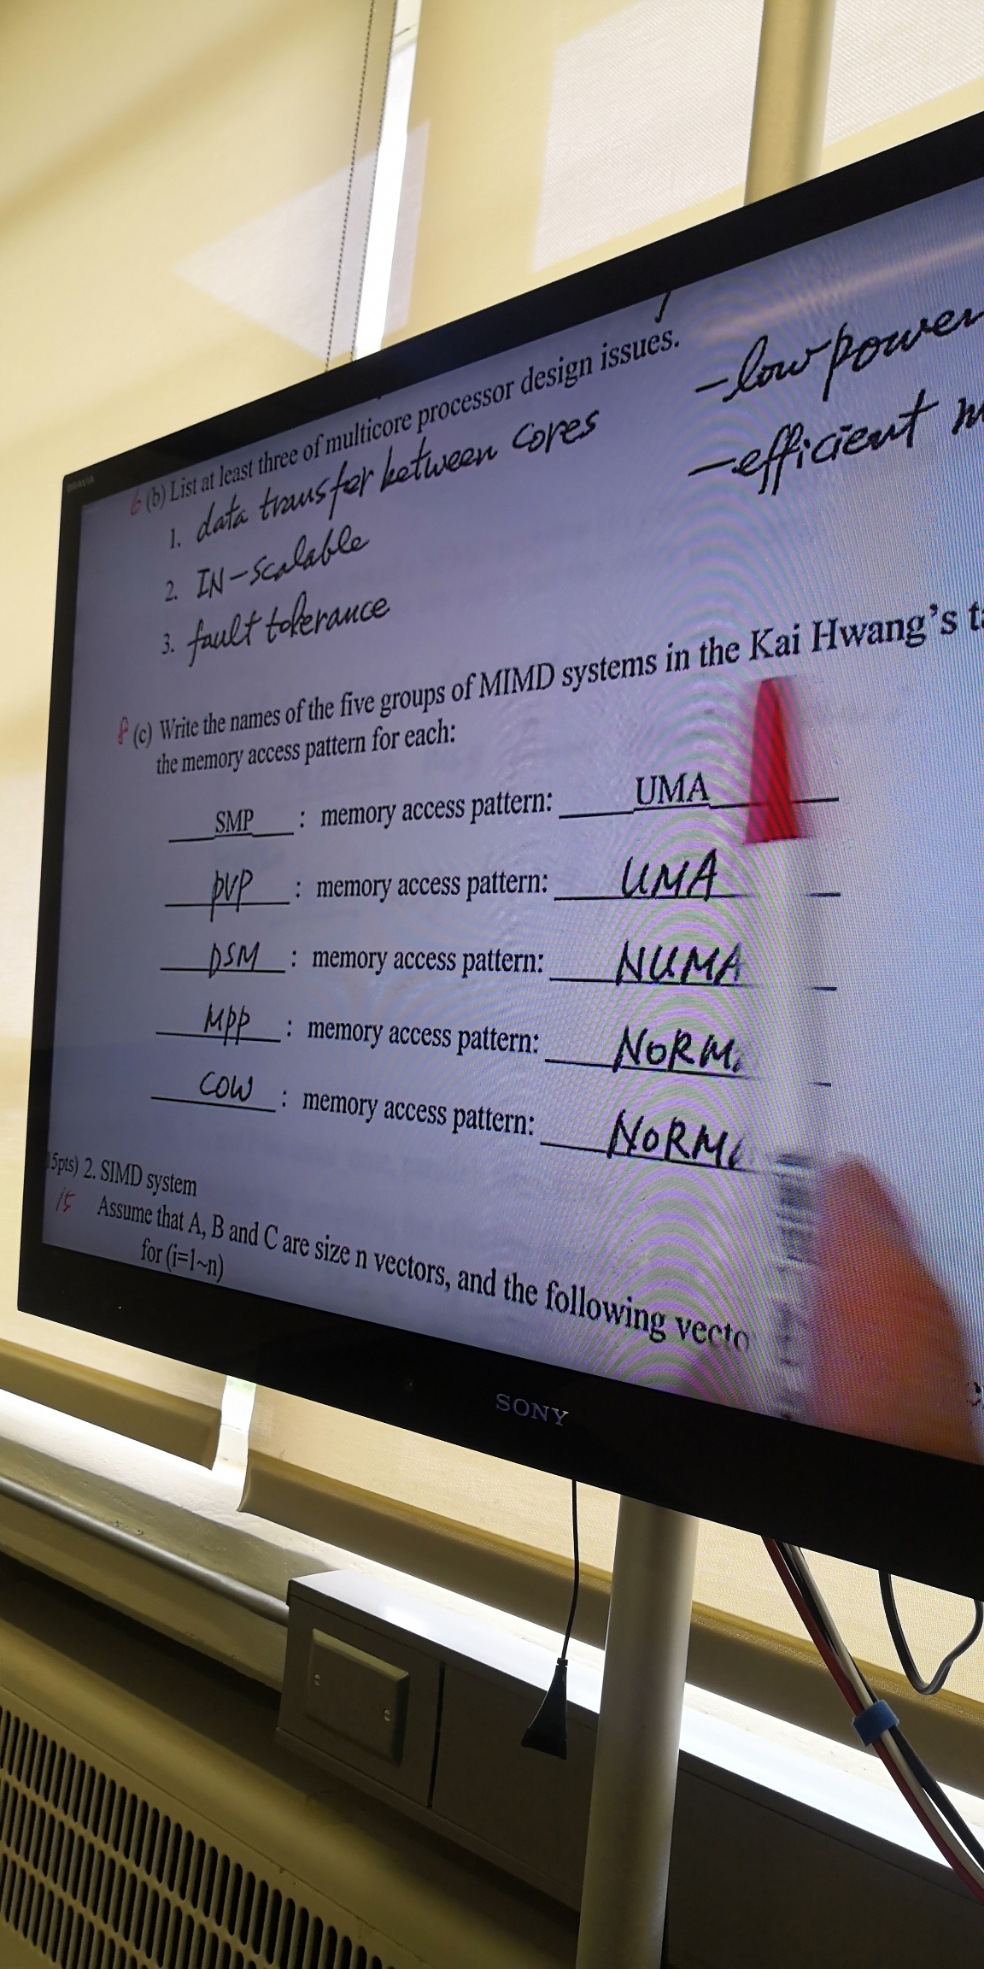 BRAVIA
6 (b) List at least three of multicore processor design issues.
1. data transfer between cores
2. IN-Scalable
3. fault tolerance
-low power
-efficient
8 (c) Write the names of the five groups of MIMD systems in the Kai Hwang's
the memory access pattern for each:
SMP : memory access pattern: UMA
PVP : memory access pattern: UMA
DSM : memory access pattern: NUMA
MPP : memory access pattern: NORM
COW : memory access pattern: NORM
5pts) 2. SIMD system
15 Assume that A, B and C are size n vectors, and the following vecto
for (i=1~n)
SONY